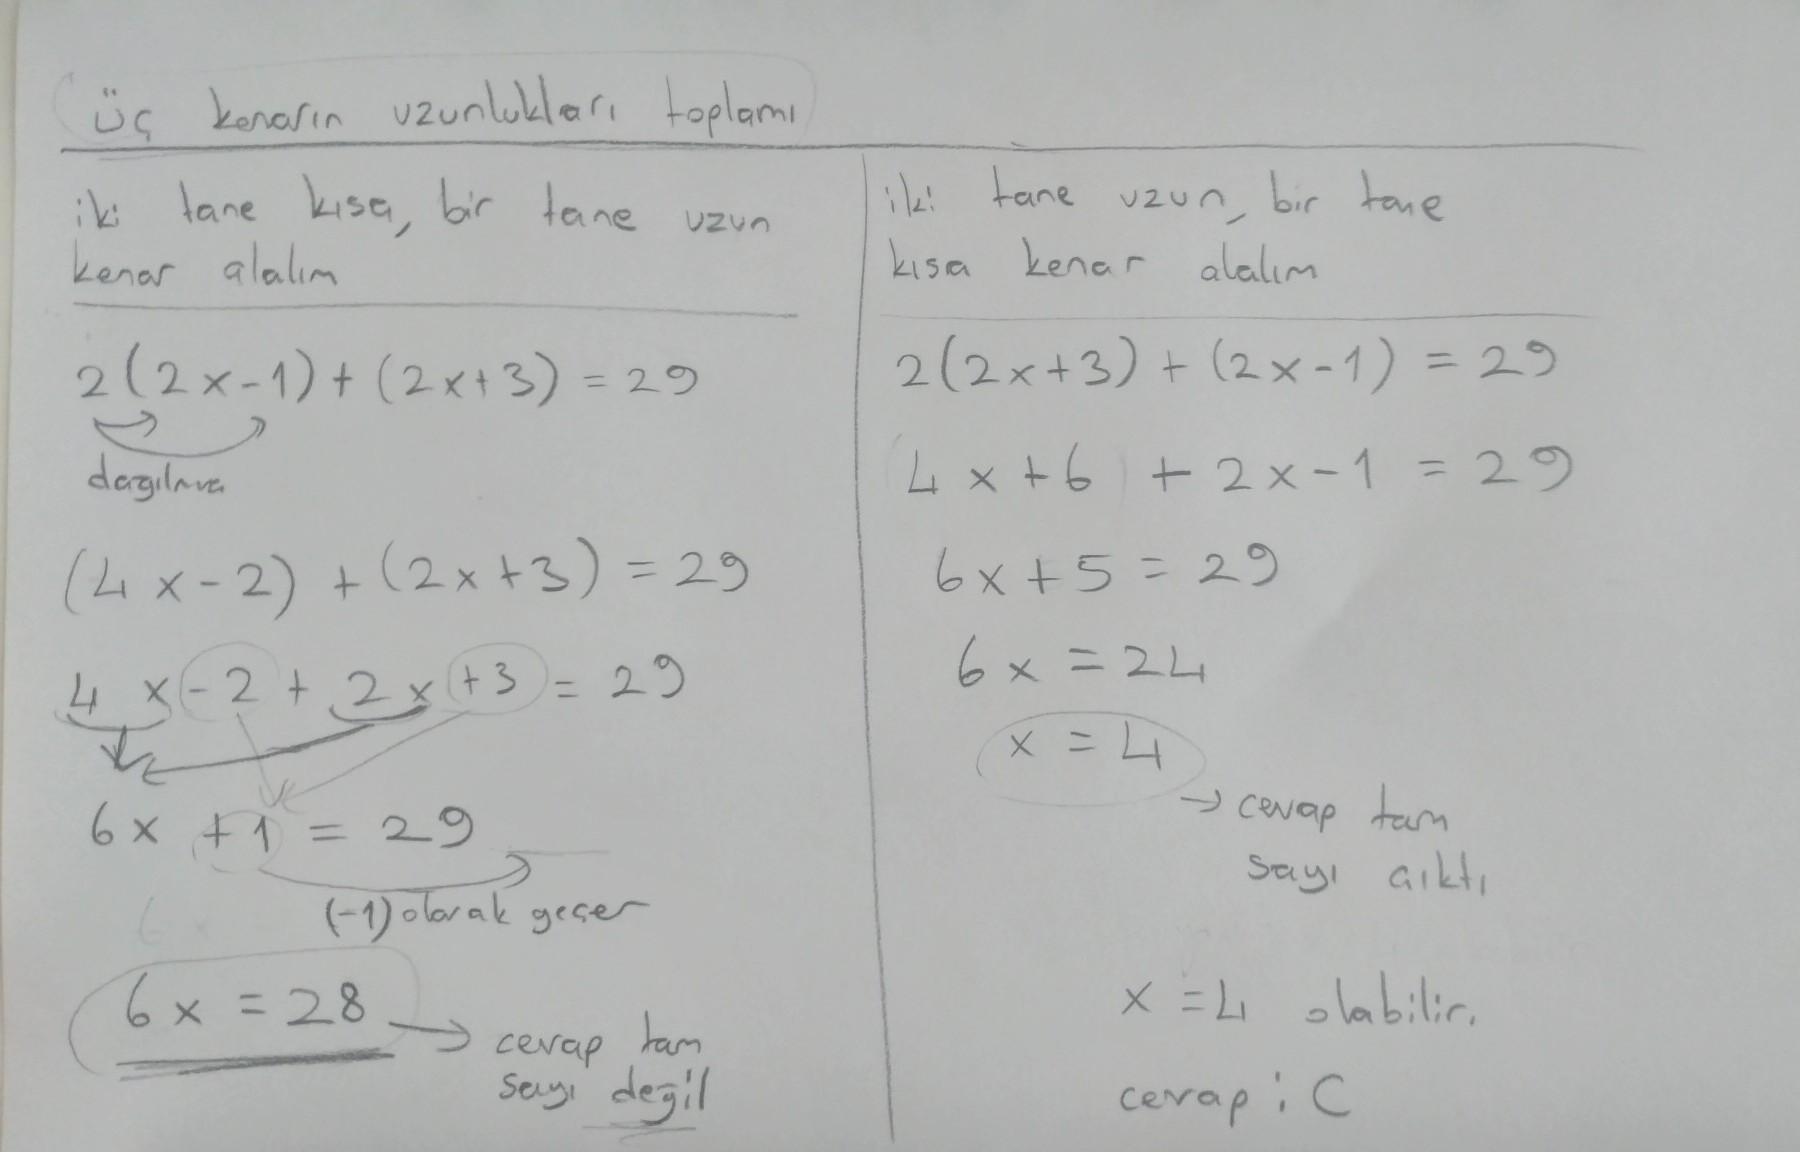 üç kenarın uzunlukları toplamı
iki tane kısa, bir tane uzun
kenar alalım
2(2x-1)+(2x+3)=29
dağılma
(4x-2)+(2x+3)=29
4x-2+2x+3=29
6x+1=29
(-1) olarak geçer
6x=28
cevap tam
sayı değil
iki tane uzun, bir tane
kısa kenar alalım
2(2x+3)+(2x-1)=29
4x+6+2x-1=29
6x+5=29
6x=24
x=4
→ cevap tam
sayı çıktı
x=4 olabilir.
cevap: C